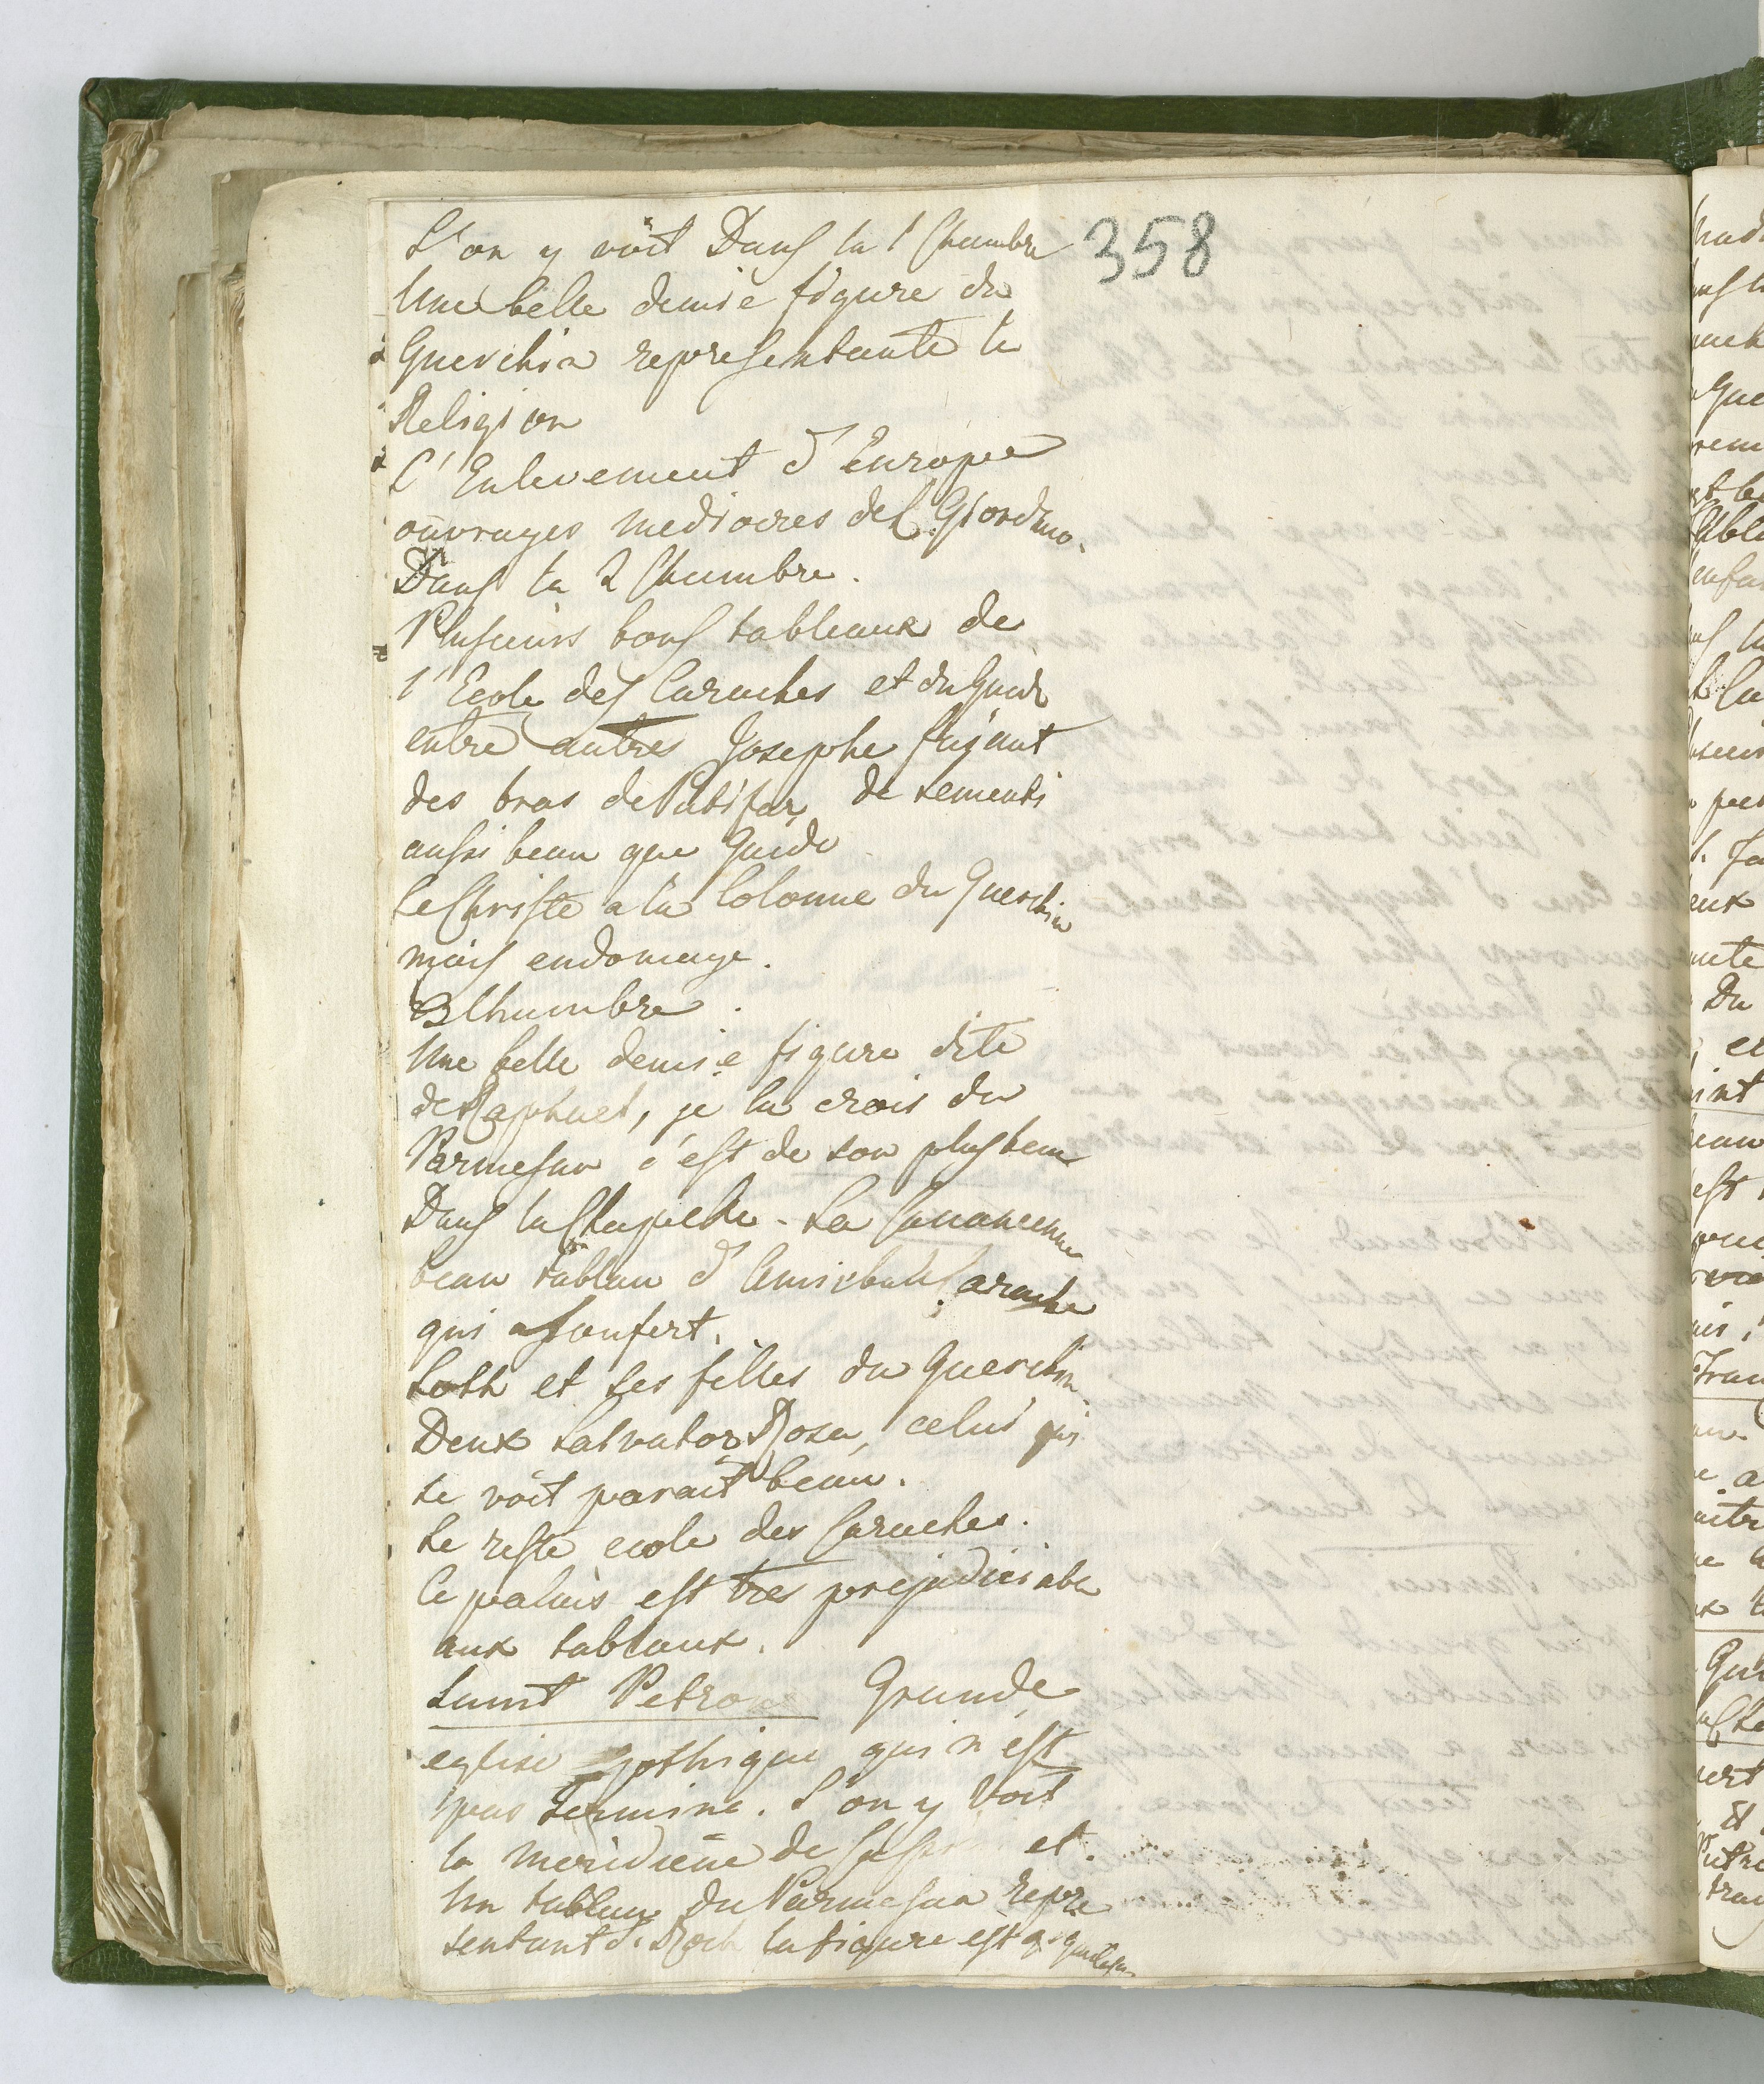 358
L'on y voit Dans la 1 Chambre
Une belle demie figure du
Guerchin representante la
Religion
L'Enlevement d'Europe
ouvrages mediocres del Giordano.
Dans la 2 Chambre.
Plusieurs bons tableaux de
l'Ecole des Caraches et du Guide
entre autres Josephe fuijant
des bras de Putifar, de sementi
aussi beau que Guido
Le Christe a la Colonne du Guerchin
mais endomage.
3 Chambre.
Une belle demie figure dite
de Raphael, je la crois du
Parmesan c'est de son plus beau
Dans la Chapelle - La Cananeenne
beau tablau d'Annibal Carache
qui a soufert.
Loth et ses filles du Guerchin
Deux Salvator Rosa, celui qui
se voit parait beau.
Le reste ecole des Caraches.
Ce palais est tres prejudiciable
aux tablaux.
Saint Petrone Grande
eglise gothique qui n'est
pas termine. L'on y voit
la meridiene de et
Un tablau du Parmesan repre
sentant S. Roch la figure est